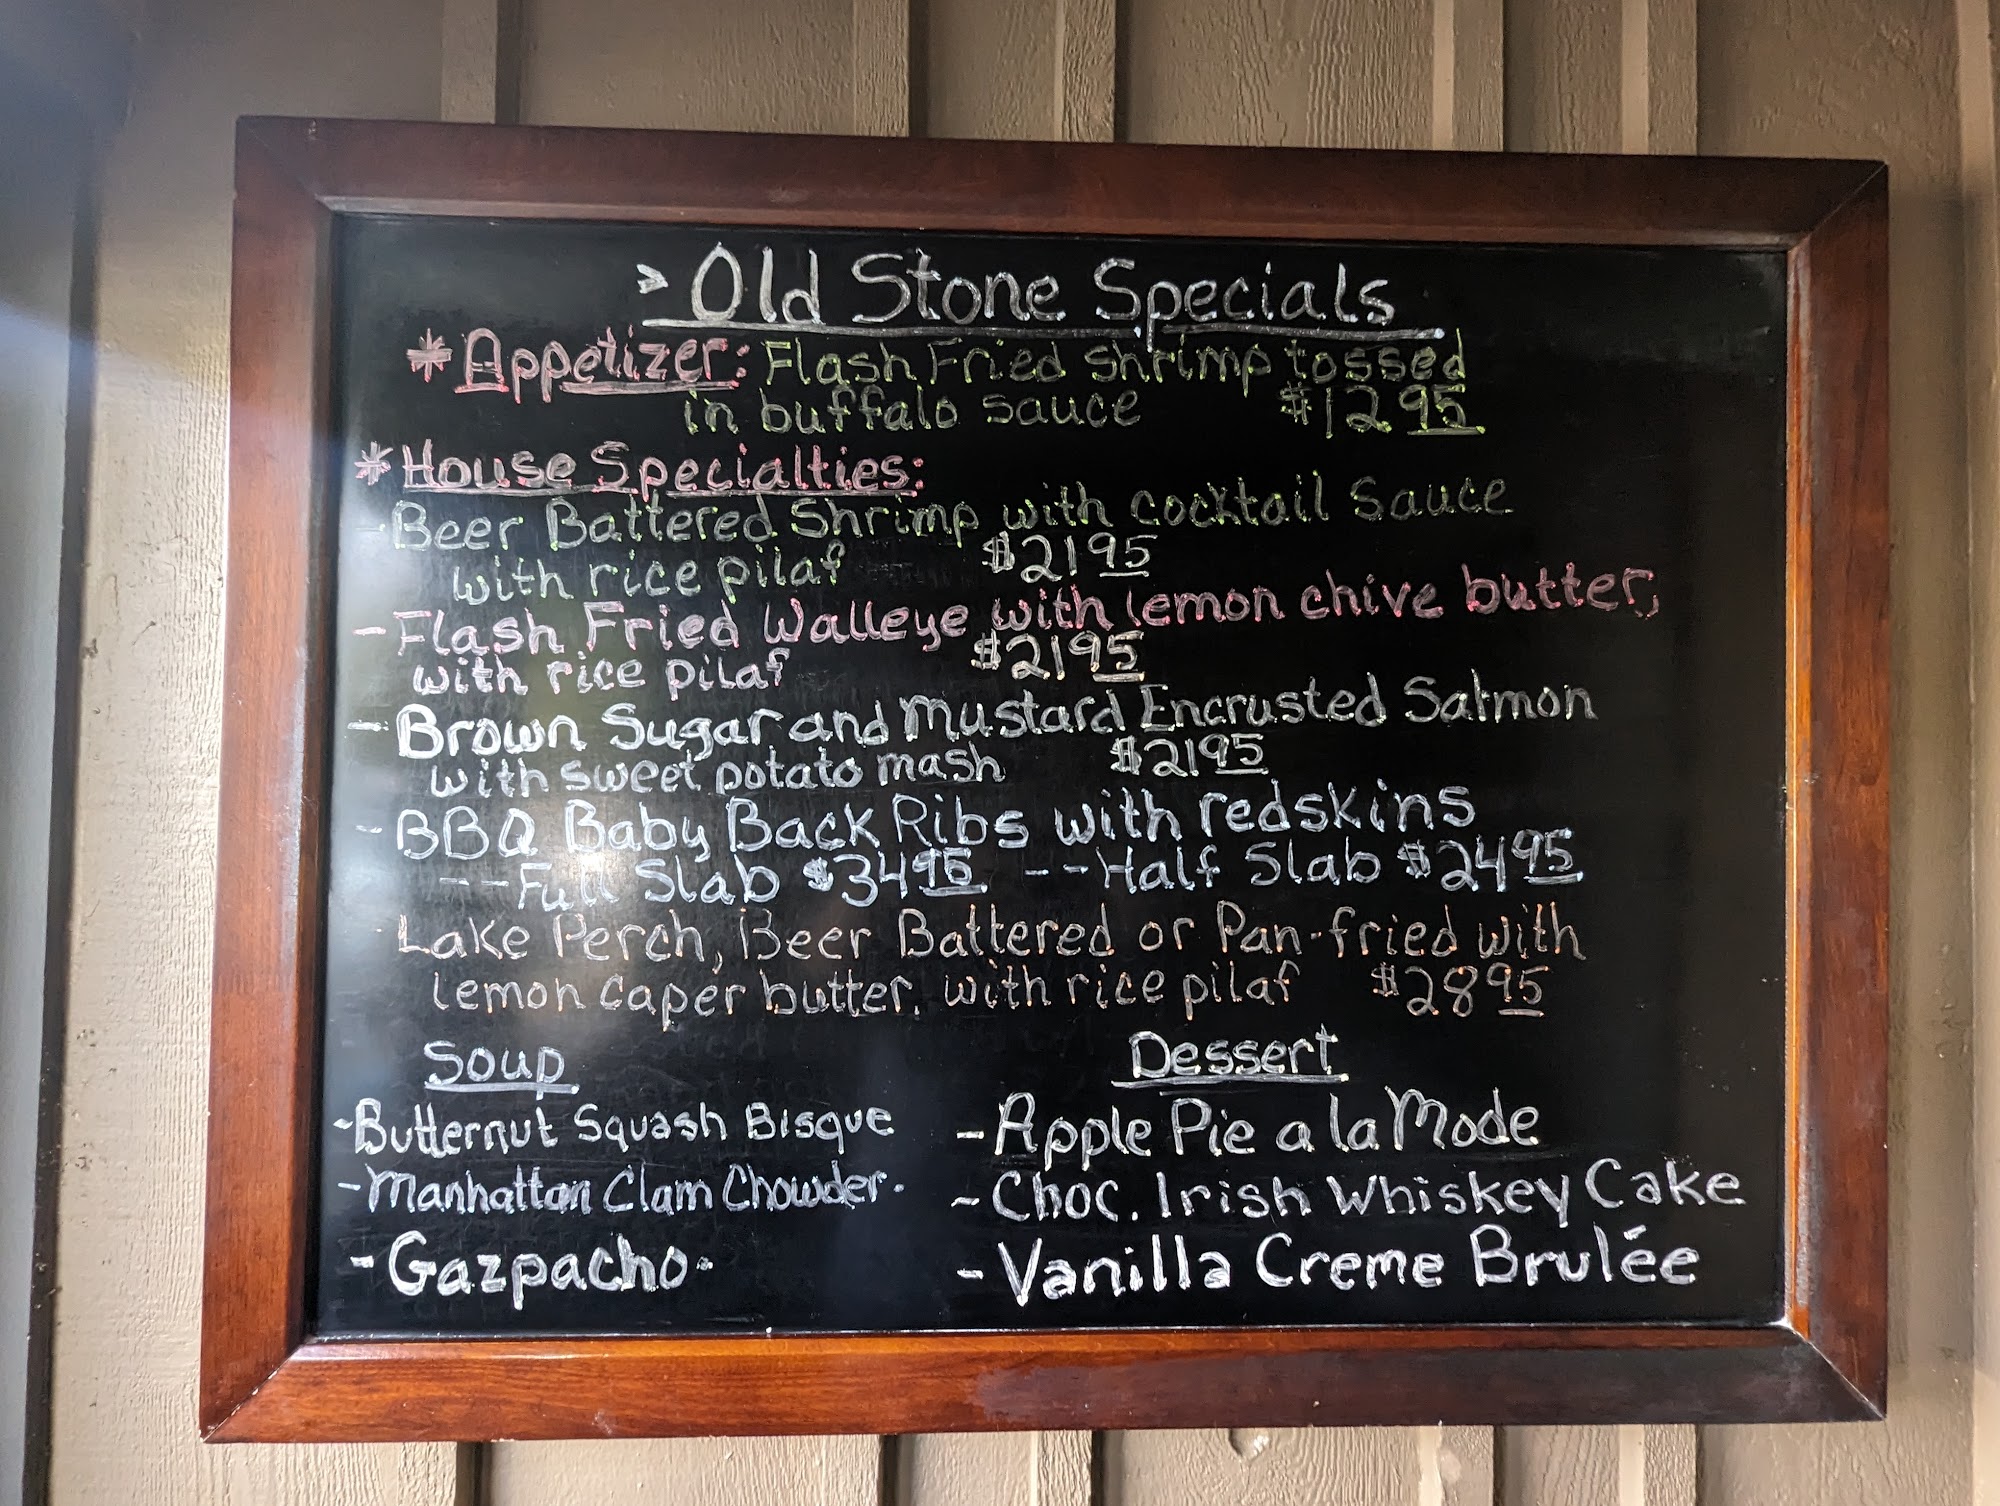 > Old Stone Specials
* Appetizer: Flash Fried Shrimp tossed
in buffalo sauce $12 95
* House Specialties:
- Beer Battered Shrimp with cocktail sauce
with rice pilaf $21 95
- Flash Fried Walleye with lemon chive butter,
with rice pilaf $21 95
- Brown Sugar and Mustard Encrusted Salmon
with sweet potato mash $21 95
- BBQ Baby Back Ribs with redskins
-- Full Slab $34 95 -- Half Slab $24 95
Lake Perch, Beer Battered or Pan-fried with
lemon caper butter, with rice pilaf $28 95
Soup
- Butternut Squash Bisque
- Manhattan Clam Chowder.
- Gazpacho.
Dessert
- Apple Pie a la Mode
- Choc. Irish Whiskey Cake
- Vanilla Creme Brulée